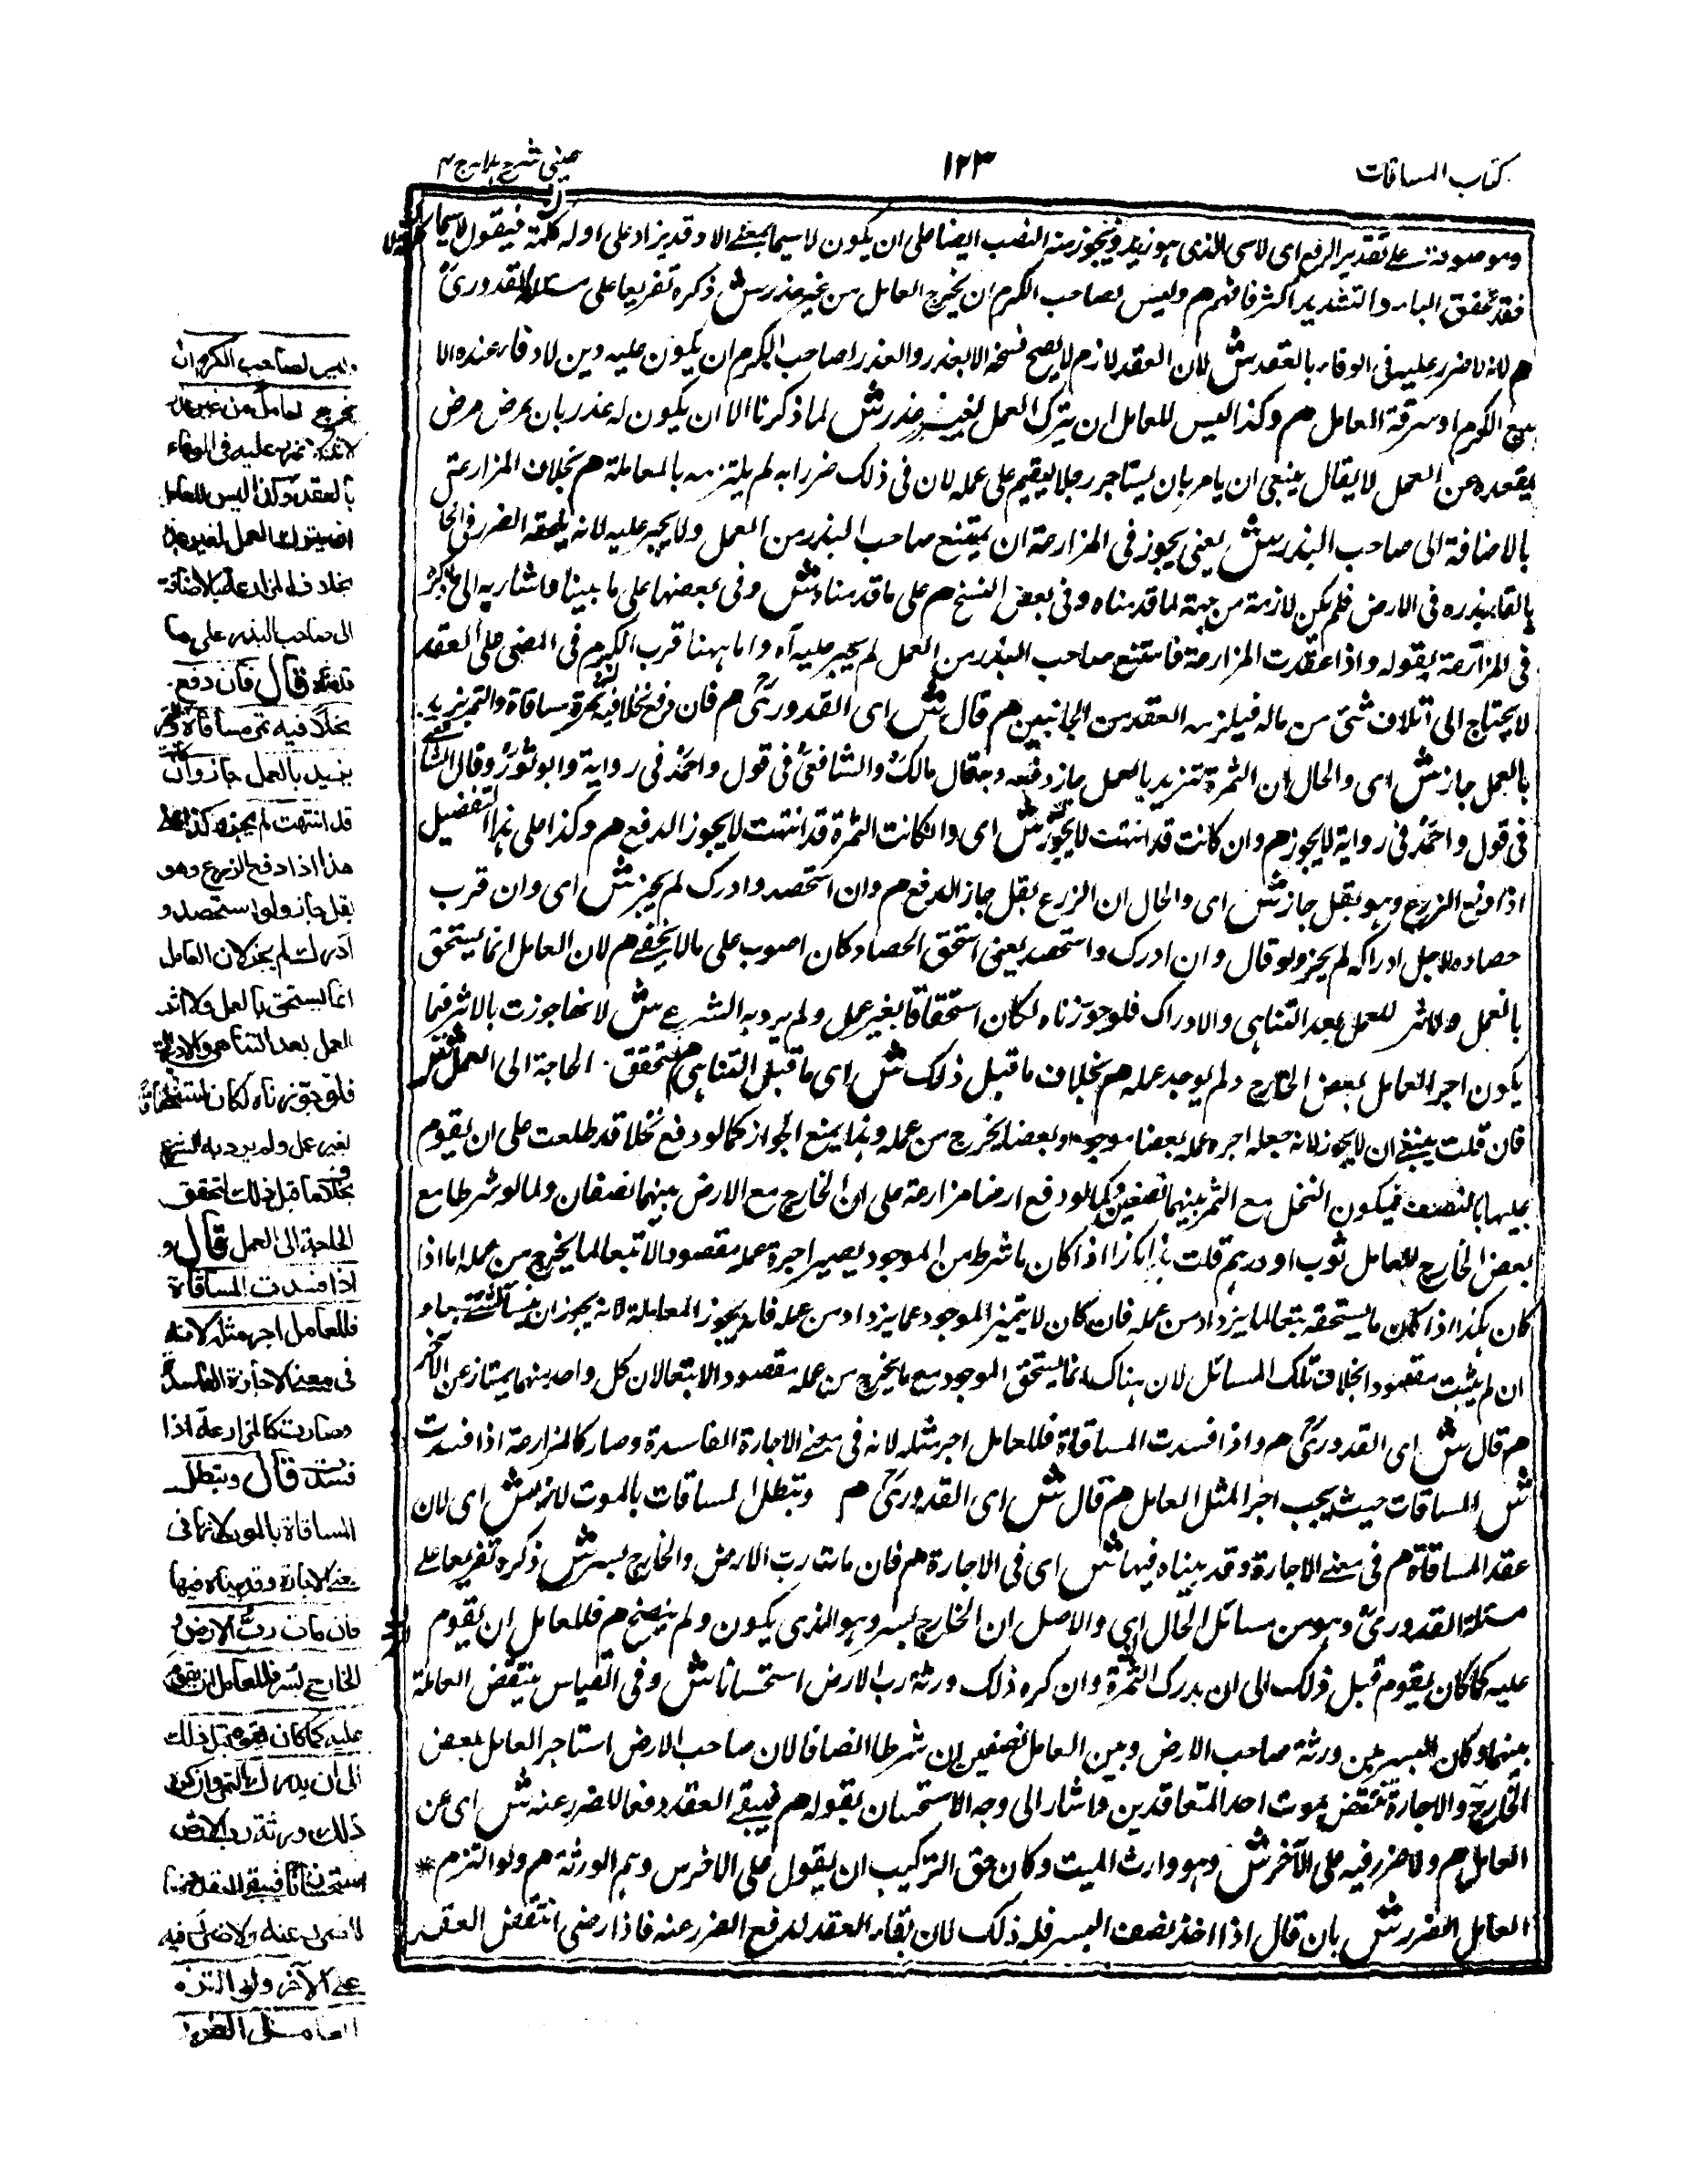 كتاب المساقات
١٢٣
عيني شرح هدايه ج ٣
وموصوفة على تقدير الرفع اى لاسى الذى هو زيد ويجوز منه النصب ايضا على ان يكون لاسيما بمعنى الا وقد يزاد على اوله كلمة فيقول لاسيما
فقد تخفف الياء والتشديد اكثر فافهم هم وليس لصاحب الكرم ان يخرج العامل من غير عذر ش ذكره تفريعا على مسئلة القدورىؒ
م لانه لا ضرر عليه فى الوفاء بالعقد ش لان العقد لازم لا يصح فسخه الا بعذر والعذر لصاحب الكرم ان يكون عليه دين لا وفاء عنده الا
ببيع الكرم او سرقة العامل هم وكذا ليس للعامل ان يترك العمل لغير عذر ش لما ذكرنا الا ان يكون له عذر بان يمرض مرض
يقعده عن العمل لا يقال ينبغى ان يامر بان يستاجر رجلا يقيم على عمله لان فى ذلك ضررا به لم يلتزمه بالمعاملة هم بخلاف المزارعة ش
بالاضافة الى صاحب البذر ش يعنى يجوز فى المزارعة ان يمتنع صاحب البذر من العمل ولا يجبر عليه لانه يلحقه الضرر فى الحال
بالقاء بذره فى الارض فلم تكن لازمة من جهته لما قدمناه وفى بعض النسخ هم على ما قدمناه ش وفى بعضها على ما بينا واشار به الى ما ذكر
فى المزارعة بقوله واذا عقدت المزارعة فامتنع صاحب البذر من العمل لم يجبر عليه آه واما ههنا قرب الكرم فى المضى على العقد
لا يحتاج الى اتلاف شئ من ماله فيلزمه العقد من الجانبين هم قال ش اى القدورىؒ م فان دفع نخلا فيه ثمرة مساقاة والتمر يزيد
بالعمل جاز ش اى والحال ان الثمرة تزيد بالعمل جاز دفعه وبه قال مالكؒ والشافعىؒ فى قول واحمدؒ فى رواية وابو ثورؒ وقال الشافعى
فى قول واحمدؒ فى رواية لا يجوز هم وان كانت قد انتهت لا يجوز ش اى وان كانت الثمرة قد انتهت لا يجوز الدفع هم وكذا على هذا التفصيل
اذا دفع الزرع وهو بقل جاز ش اى والحال ان الزرع بقل جاز الدفع هم وان استحصد وادرك لم يجز ش اى وان قرب
حصاده لاجل ادراكه لم يجز ولو قال وان ادرك واستحصد يعنى استحق الحصاد كان اصوب على ما لا يخفى هم لان العامل انما يستحق
بالعمل ولا اثر للعمل بعد التناهى والادراك فلو جوزناه لكان استحقاقا بغير عمل ولم يرد به الشرع ش لانها جوزت بالاثر فيما
يكون اجر العامل بعض الخارج ولم يوجد عمله هم بخلاف ما قبل ذلك ش اى ما قبل التناهى هم لتحقق الحاجة الى العمل ش
فان قلت ينبغى ان لا يجوز لانه جعله اجره عمله بعضا موجود وبعضا يخرج من عمله وهذا يمنع الجواز كما لو دفع نخلا قد طلعت على ان يقوم
عليها بالنصف فيكون النخل مع الثمر بينهما نصفين وكما لو دفع ارضا مزارعة على ان الخارج مع الارض بينهما نصفان وكما لو شرطا مع
بعض الخارج للعامل ثوب او درهم قلت هذا هكذا اذا كان ما شرط من الموجود يصير اجرة عمله مقصودا لا تبعا لما يخرج من عمله اما اذا
كان هكذا اذا كان ما يستحقه تبعا لما يزداد من عمله فان كان لا يتميز الموجود عما يزداد من عمله فانه يجوز المعاملة لانه يجوز ان
ان لم يثبت مقصودا بخلاف تلك المسائل لان هناك انما يستحق الموجود مع ما يخرج من عمله مقصودا لا تبعا لان كل واحد منهما يمتاز عن الآخر
هم قال ش اى القدورىؒ م واذا فسدت المساقاة فللعامل اجر مثله لانه فى معنى الاجارة الفاسدة وصار كالمزارعة اذا فسدت
ش المساقات حيث يجب اجر المثل العامل هم قال ش اى القدورىؒ م وتبطل المساقات بالموت لانها ش اى لان
عقد المساقاة هم فى معنى الاجارة وقد بيناه فيها ش اى فى الاجارة هم فان مات رب الارض والخارج بسر ش ذكره تفريعا على
مسئلة القدورىؒ وهو من مسائل الحال اى والاصل ان الخارج بسر وهو الذى يكون ولم ينضج هم فللعامل ان يقوم
عليه كما كان يقوم قبل ذلك الى ان يدرك الثمرة وان كره ذلك ورثة رب الارض استحسانا ش وفى القياس ينتقض العاملة
بينهما وكان البسر بين ورثة صاحب الارض وبين العامل نصفين ان شرطا انصافا لان صاحب الارض استاجر العامل ببعض
الخارج والاجارة تنتقض بموت احد المتعاقدين واشار الى وجه الاستحسان بقوله هم فيبقى العقد دفعا للضرر عنه ش اى عن
العامل هم ولا ضرر فيه على الآخر ش وهو وارث الميت وكان حق التركيب ان يقول على الاخرين وهم الورثة هم ولو التزم
العامل الضرر ش بان قال اذا اخذ نصف البسر فله ذلك لان بقاء العقد لدفع الضرر عنه فاذا رضى انتقض العقد
وليس لصاحب الكرم ان
يخرج العامل من غير عذر
لانه لا ضرر عليه فى الوفاء
بالعقد وكذا ليس للعامل
ان يترك العمل لغير عذر
بخلاف المزارعة بالاضافة
الى صاحب البذر على ما
قدمناه قال فان دفع
نخلا فيه تمر مساقاة والتمر
يزيد بالعمل جاز وان كانت
قد انتهت لم يجز وكذا على
هذا اذا دفع الزرع وهو
بقل جاز ولو استحصد و
ادرك لم يجز لان العامل
انما يستحق بالعمل ولا اثر
للعمل بعد التناهى والادراك
فلو جوزناه لكان استحقاقا
بغير عمل ولم يرد به الشرع
بخلاف ما قبل ذلك لتحقق
الحاجة الى العمل قال و
اذا فسدت المساقاة
فللعامل اجر مثله لانه
فى معنى الاجارة الفاسدة
وصارت كالمزارعة اذا
فسدت قال وتبطل
المساقاة بالموت لانها فى
معنى الاجارة وقد بيناه فيها
فان مات رب الارض و
الخارج بسر فللعامل ان يقوم
عليه كما كان يقوم قبل ذلك
الى ان يدرك الثمر وان كره
ذلك ورثة رب الارض
استحسانا فيبقى العقد دفعا
للضرر عنه ولا ضرر فيه
على الآخر ولو التزم
العامل الضرر